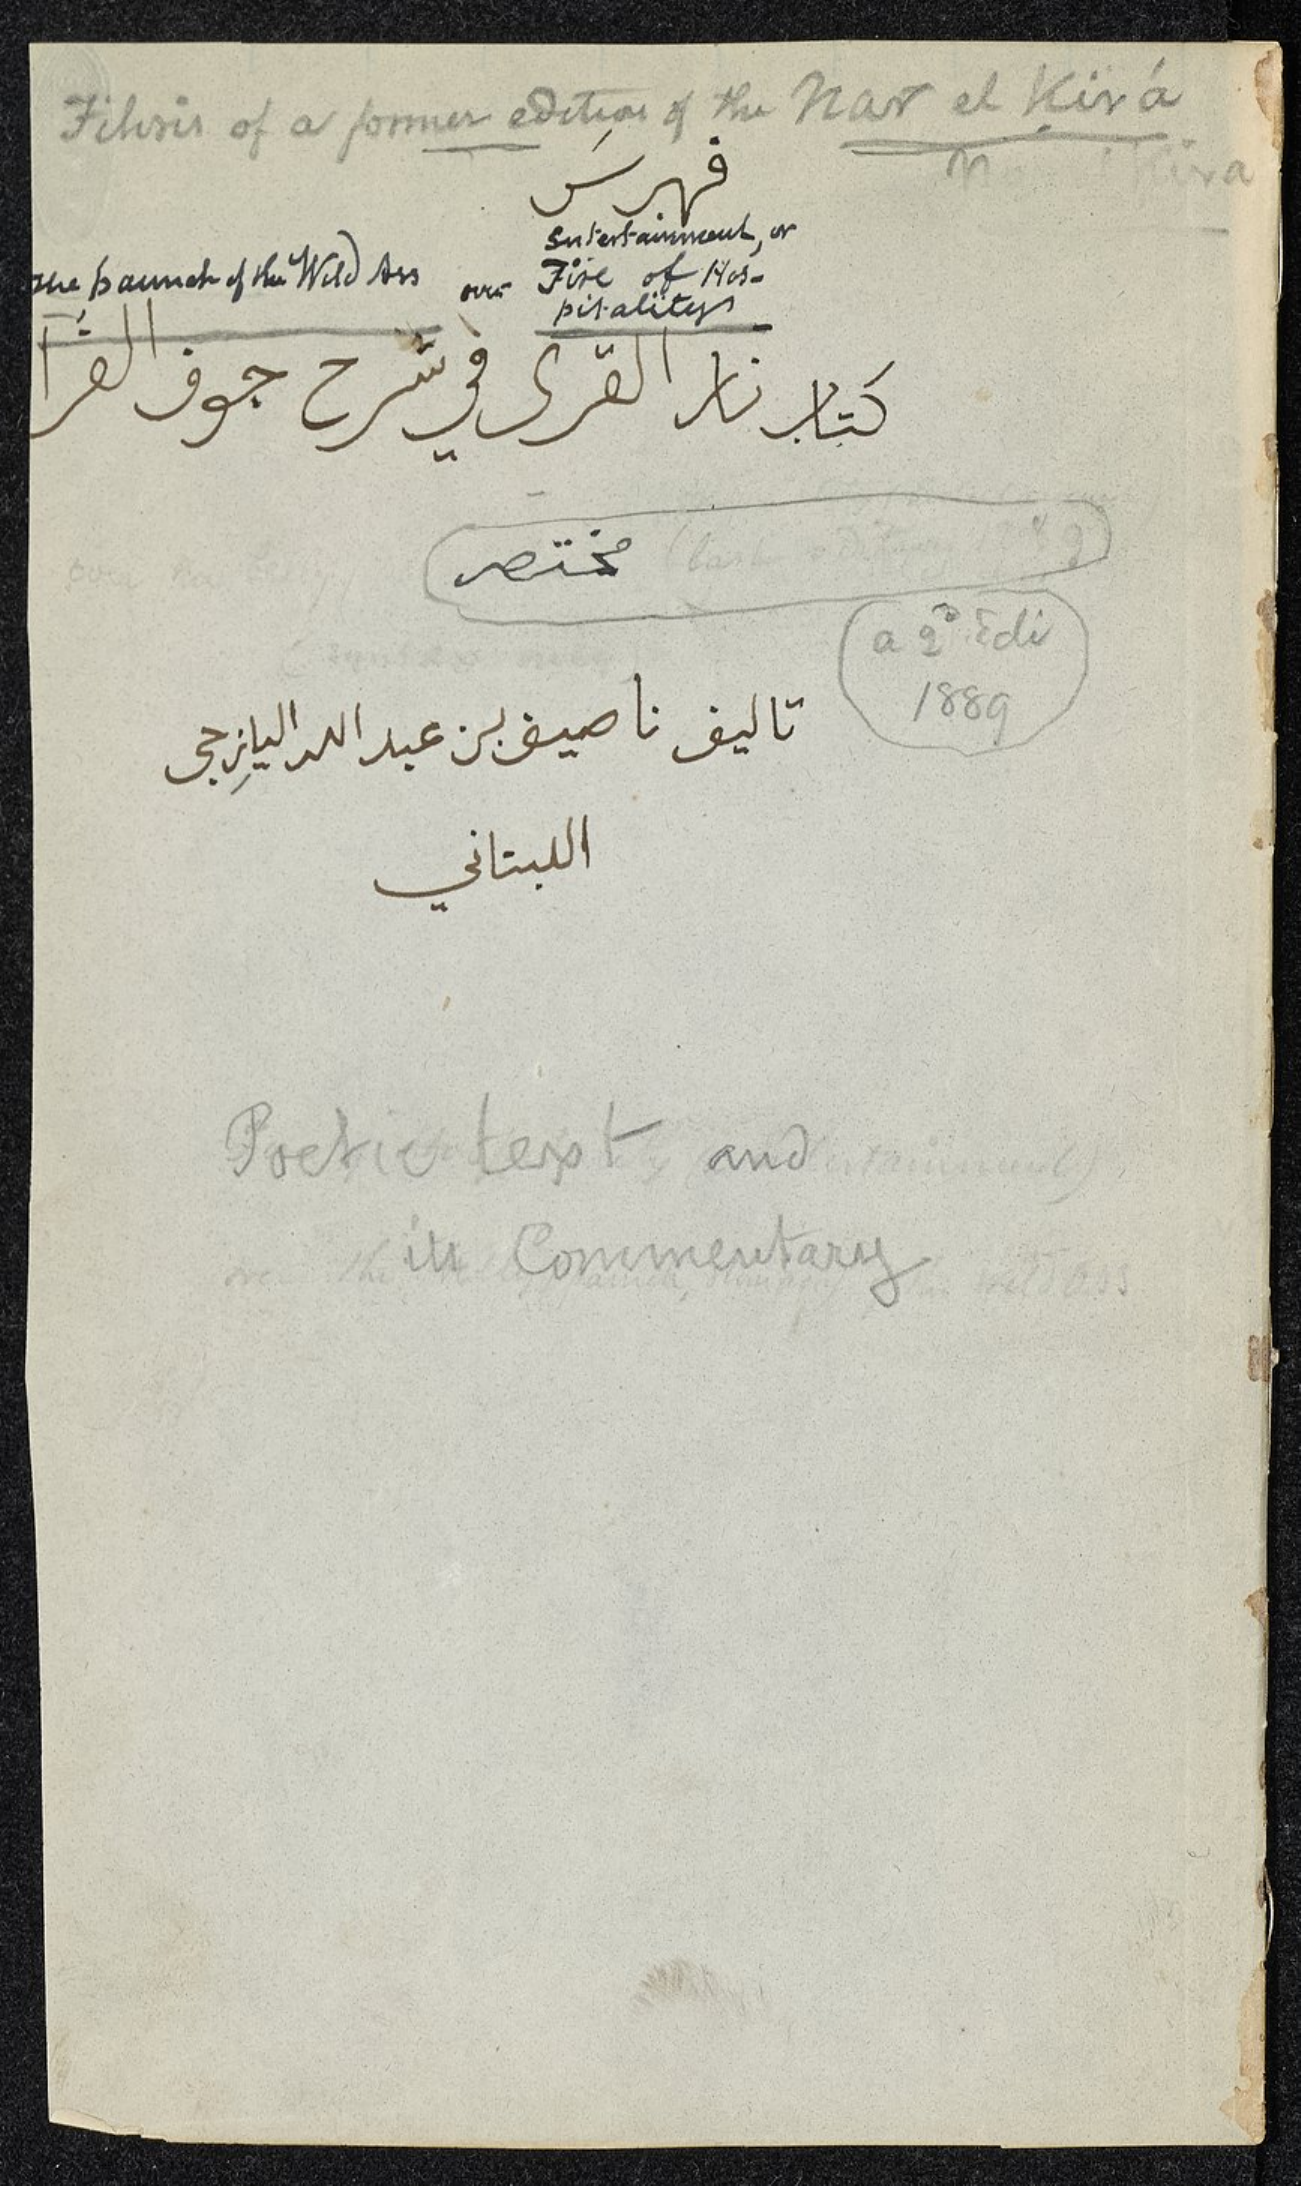 Fihris of a former edition of the Nar el Kirá
فهرس
Entertainment, or
the paunch of the Wild Ass over Fire of Hos-
pitality
كتاب نار القرى في شرح جوف الفرا
مختصر (last edition
a 2ᵈ Edi
1889
تاليف ناصيف بن عبد الله اليازجي
اللبناني
Poetic text and
its Commentary